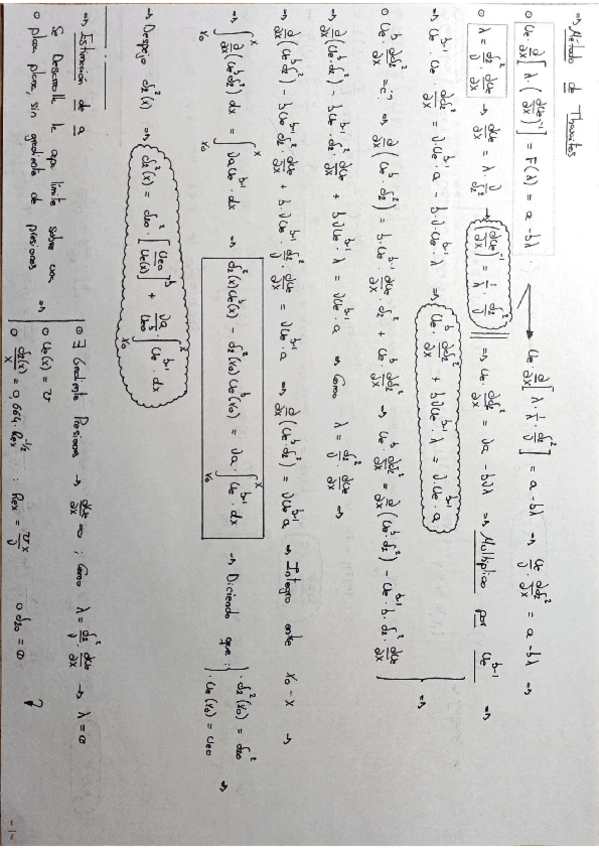 ⇒ Método de Thwaites
○ Ue·∂/∂x[λ·(∂Ue/∂x)⁻¹] = F(λ) = a - bλ → Ue ∂/∂x[λ·1/λ·δ₂²/ν] = a - bλ ⇒ Ue/ν·∂δ₂²/∂x = a - bλ ⇒
○ λ = δ₂²/ν·∂Ue/∂x ⇒ ∂Ue/∂x = λ·ν/δ₂² ⇒ (∂Ue/∂x)⁻¹ = 1/λ·δ₂²/ν ⇒ Ue·∂δ₂²/∂x = νa - bνλ ⇒ Multiplico por Ue^(b-1) ⇒
⇒ Ue^(b-1)·Ue·∂δ₂²/∂x = ν·Ue^(b-1)·a - b·ν·Ue^(b-1)·λ ⇒ Ue^b·∂δ₂²/∂x + bνUe^(b-1)·λ = ν·Ue^(b-1)·a
○ Ue^b·∂δ₂²/∂x = ¿? ⇒ ∂/∂x(Ue^b·δ₂²) = b·Ue^(b-1)·∂Ue/∂x·δ₂² + Ue^b·∂δ₂²/∂x ⇒ Ue^b·∂δ₂²/∂x = ∂/∂x(Ue^b·δ₂²) - Ue^(b-1)·b·δ₂²·∂Ue/∂x ⇒
⇒ ∂/∂x(Ue^b·δ₂²) - bUe^(b-1)·δ₂²·∂Ue/∂x + bνUe^(b-1)·λ = νUe^(b-1)·a ⇒ Como λ = δ₂²/ν·∂Ue/∂x ⇒
⇒ ∂/∂x(Ue^b·δ₂²) - bUe^(b-1)·δ₂²·∂Ue/∂x + b·νUe^(b-1)·δ₂²/ν·∂Ue/∂x = νUe^(b-1)·a ⇒ ∂/∂x(Ue^b·δ₂²) = νUe^(b-1)·a ⇒ Integro entre x₀ - x ⇒
⇒ ∫_{x₀}^{x} ∂/∂x(Ue^b δ₂²) dx = ∫_{x₀}^{x} νaUe^(b-1)·dx ⇒ δ₂²(x)Ue^b(x) - δ₂²(x₀)Ue^b(x₀) = νa·∫_{x₀}^{x} Ue^(b-1)·dx ⇒ Diciendo que: · δ₂²(x₀) = δ₂₀² · Ue(x₀) = Ue₀ ⇒
⇒ Despejo δ₂²(x) ⇒ δ₂²(x) = δ₂₀²·[Ue₀/Ue(x)]^b + νa/Ue^b·∫_{x₀}^{x} Ue^(b-1)·dx
⇒ Estimación de a:
Se Desarrolla la capa límite sobre una
○ placa plana, sin gradiente de presiones ⇒
○ ∄ Gradiente Presiones ⇒ ∂Ue/∂x = 0 ; Como λ = δ₂²/ν·∂Ue/∂x ⇒ λ = 0
○ Ue(x) = U
○ δ₂(x)/x = 0,664·Rex^(-1/2) ; Rex = Ux/ν ○ δ₂₀ = 0
-1-